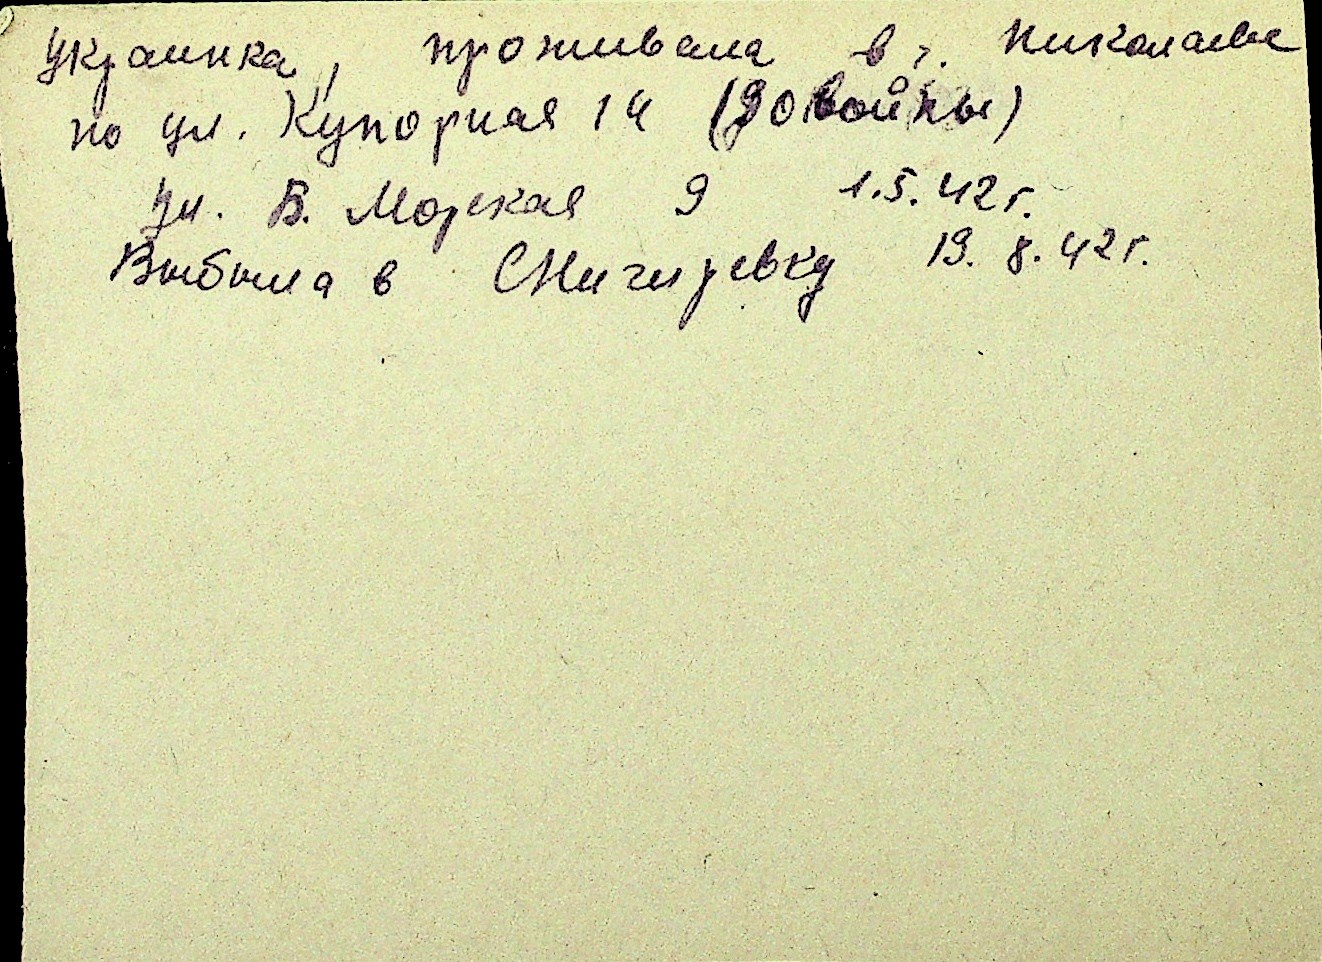 Украинка, проживала в г. Николаеве
по ул. Купорная 14 (до войны)
ул. Б. Морская 9 1.5.42 г.
Выбыла в Снигиревку 19.8.42 г.